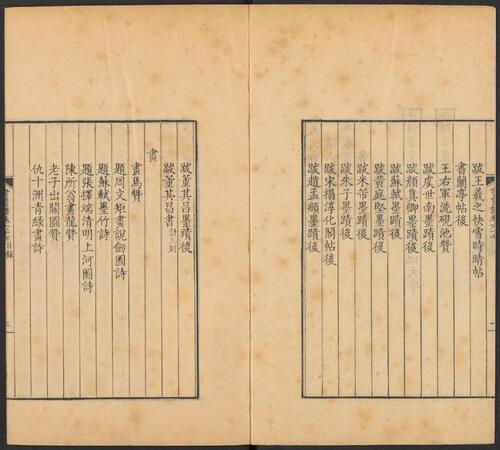 跋王羲之快雪時晴帖
書蘭亭帖後
王右軍洗硯池贊
跋虞世南墨蹟後
跋顏真卿墨蹟後
跋蘇軾墨蹟後
跋黃庭堅墨蹟後
跋米芾墨蹟後
跋朱子墨蹟後
跋宋搨淳化閣帖後
跋趙孟頫墨蹟後
跋董其昌墨蹟後
跋董其昌書計三則
畫
畫馬贊
題周文矩畫說劍圖詩
題蘇軾墨竹詩
題張擇端清明上河圖詩
陳所翁畫龍贊
老子出關圖贊
仇十洲青綠畫詩